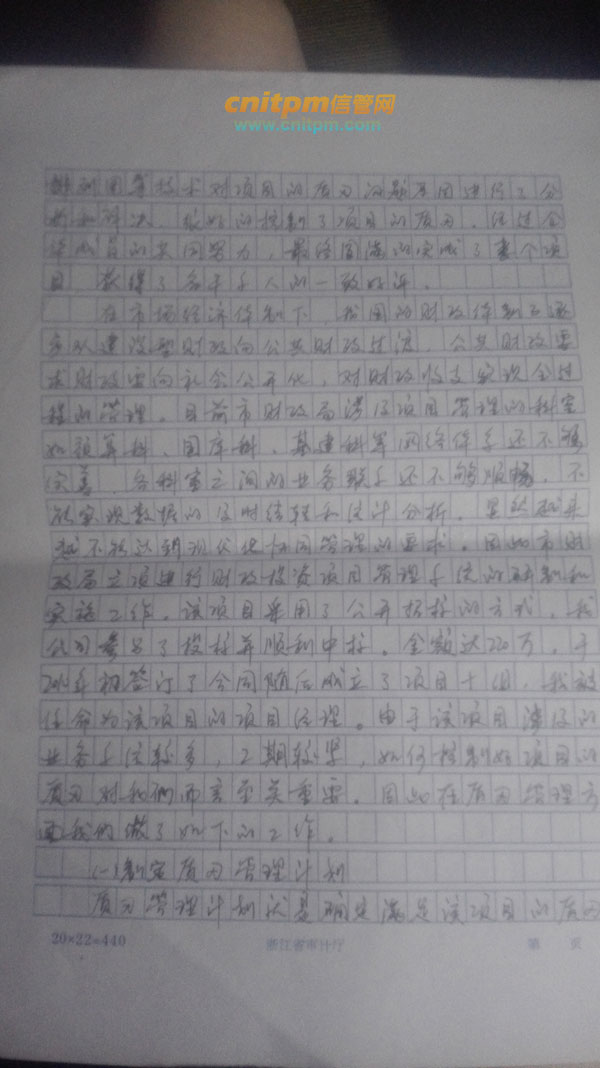 cnitpm信管网
www.cnitpm.com
等技术对项目的质量问题原因进行了分
析和解决，很好的控制了项目的质量，经过全
体成员的共同努力，最终圆满的实施了整个项
目，获得了各干系人的一致好评。
在市场经济体制下，我国的财政体制正逐
步从建设型财政向公共财政过渡，公共财政要
求财政面向社会公开化，对财政收支实现全过
程的管理。目前市财政局涉及项目管理的科室
如预算科、国库科、基建科等网络体系还不够
完善，各科室之间的业务联系还不够顺畅，不
能实现数据的及时结转和统计分析，显然越来
越不能达到现代化协同管理的要求。因此市财
政局立项进行财政投资项目管理系统的研制和
实施工作。该项目采用了公开招标的方式，我
公司参与了投标并顺利中标。金额达220万，于
年初签订了合同随后成立了项目小组，我被
任命为该项目的项目经理。由于该项目涉及的
业务系统较多，工期较紧，如何控制好项目的
质量对我们而言至关重要。因此在质量管理方
面我们做了如下的工作。
(一)制定质量管理计划
质量管理计划就是确定满足该项目的质量
20×22=440 浙江省审计厅 第 页